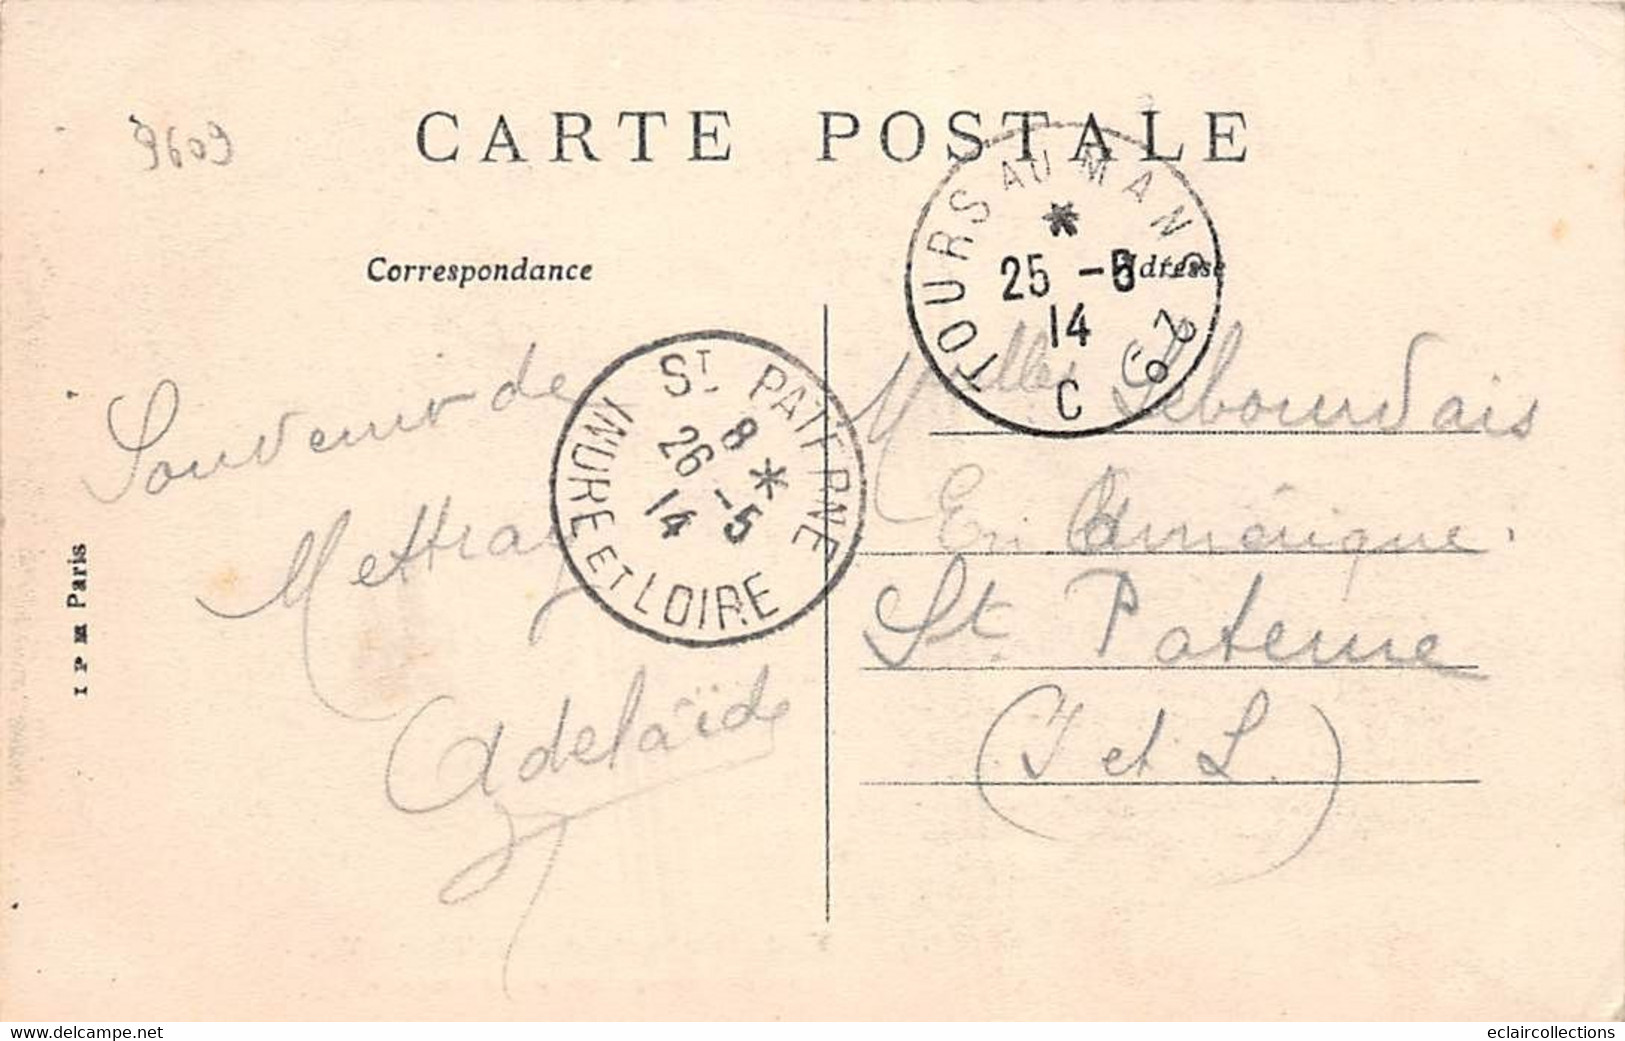 9609
CARTE POSTALE
Correspondance
Adresse
TOURS AU MANS
*
25 -5
14
C
Souvenir de
Mettray
Adélaïde
ST PATERNE
8 *
26 -5
14
INDRE ET LOIRE
Melles Lebourdais
En Amérique.
St. Paterne
(I et L.)
I P M Paris
delcampe.net
eclaircollections